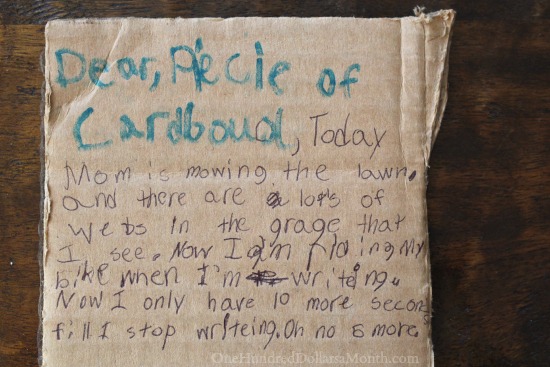 Dear, Piecie of
Cardboud, Today
Mom is mowing the lawn.
and there are a lots of
webs in the grage that
I see. Now I am riding my
bike when I'm writeing.
Now I only have 10 more secons
till I stop writeing. Oh no 8 more.
OneHundredDollarsaMonth.com